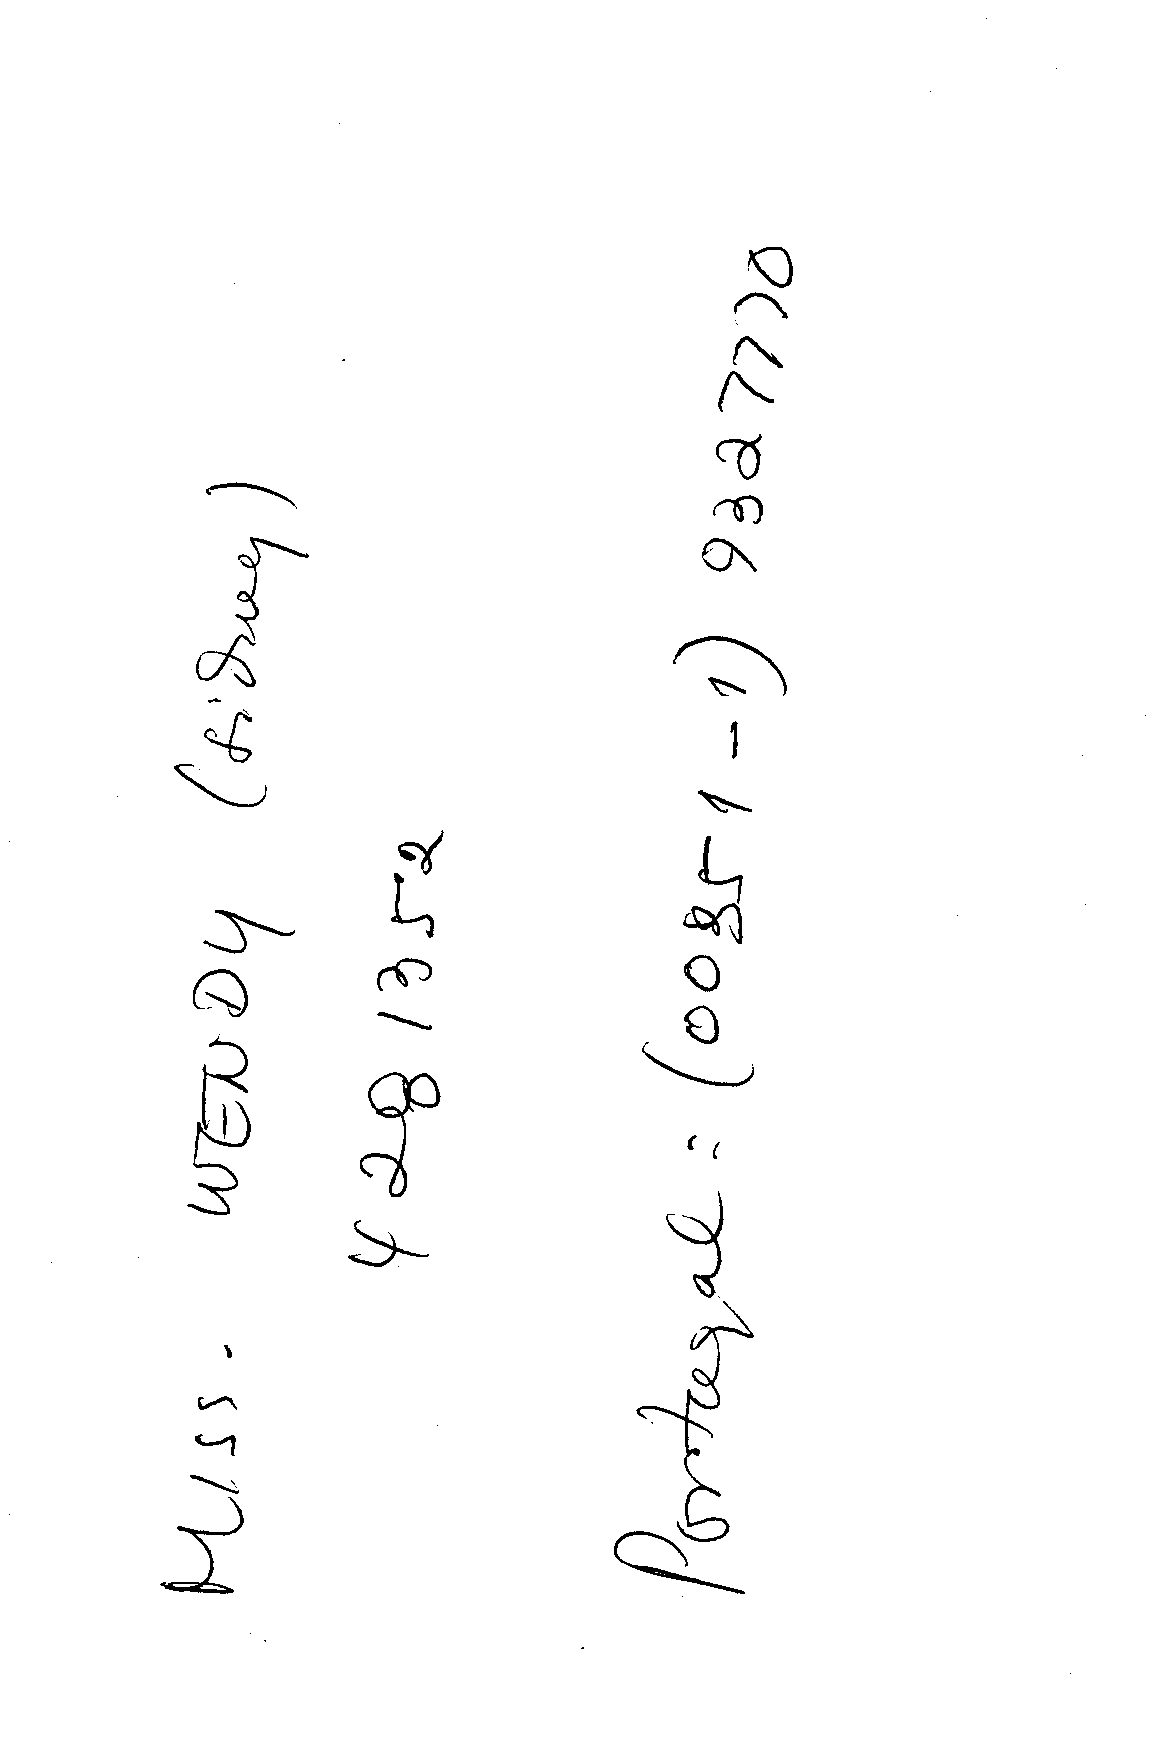 MISS. WENDY (Sidney)
428 1352
Portugal : (00351-1) 9327770